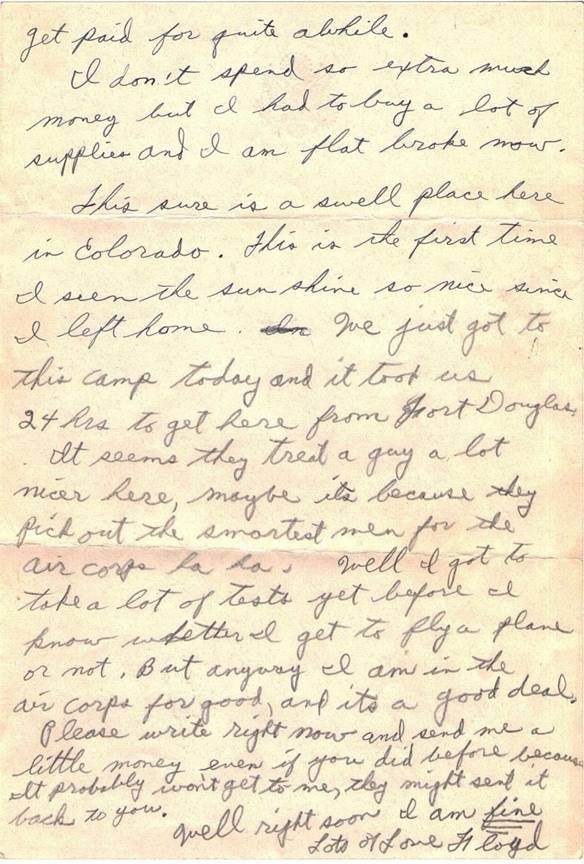 get paid for quite awhile.
I don't spend so extra much
money but I had to buy a lot of
supplies and I am flat broke now.
This sure is a swell place here
in Colorado. This is the first time
I seen the sun shine so nice since
I left home. In We just got to
this camp today and it took us
24 hrs to get here from Fort Douglas.
It seems they treat a guy a lot
nicer here, maybe its because they
pick out the smartest men for the
air corps ha ha. Well I got to
take a lot of tests yet before I
know whether I get to fly a plane
or not. But anyway I am in the
air corps for good, and its a good deal.
Please write right now and send me a
little money even if you did before because
It probably won't get to me, they might sent it
back to you.
Well right soon I am fine
Lots of Love Floyd